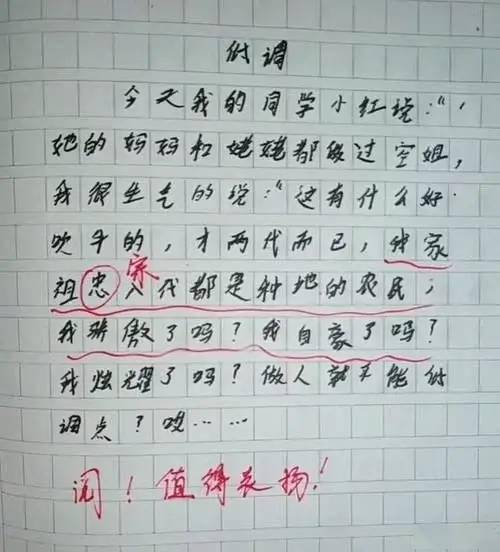 低调
今天我的同学小红说:"
她的妈妈和姥姥都做过空姐,
我很生气的说:"这有什么好
吹牛的,才两代而已,我家
宗
祖忠八代都是种地的农民,
我骄傲了吗?我自豪了吗?
我炫耀了吗?做人就不能低
调点?哎……
阅!值得表扬!